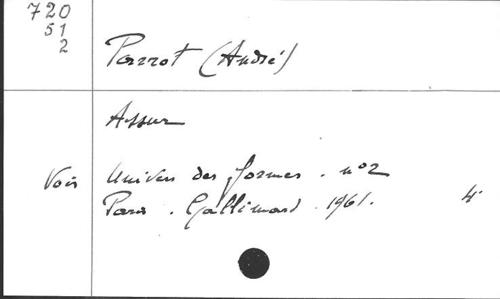 720
51
2
Parrot (André)
Assur
Voir Univers des formes . n°2
Paris . Gallimard . 1961. 4°